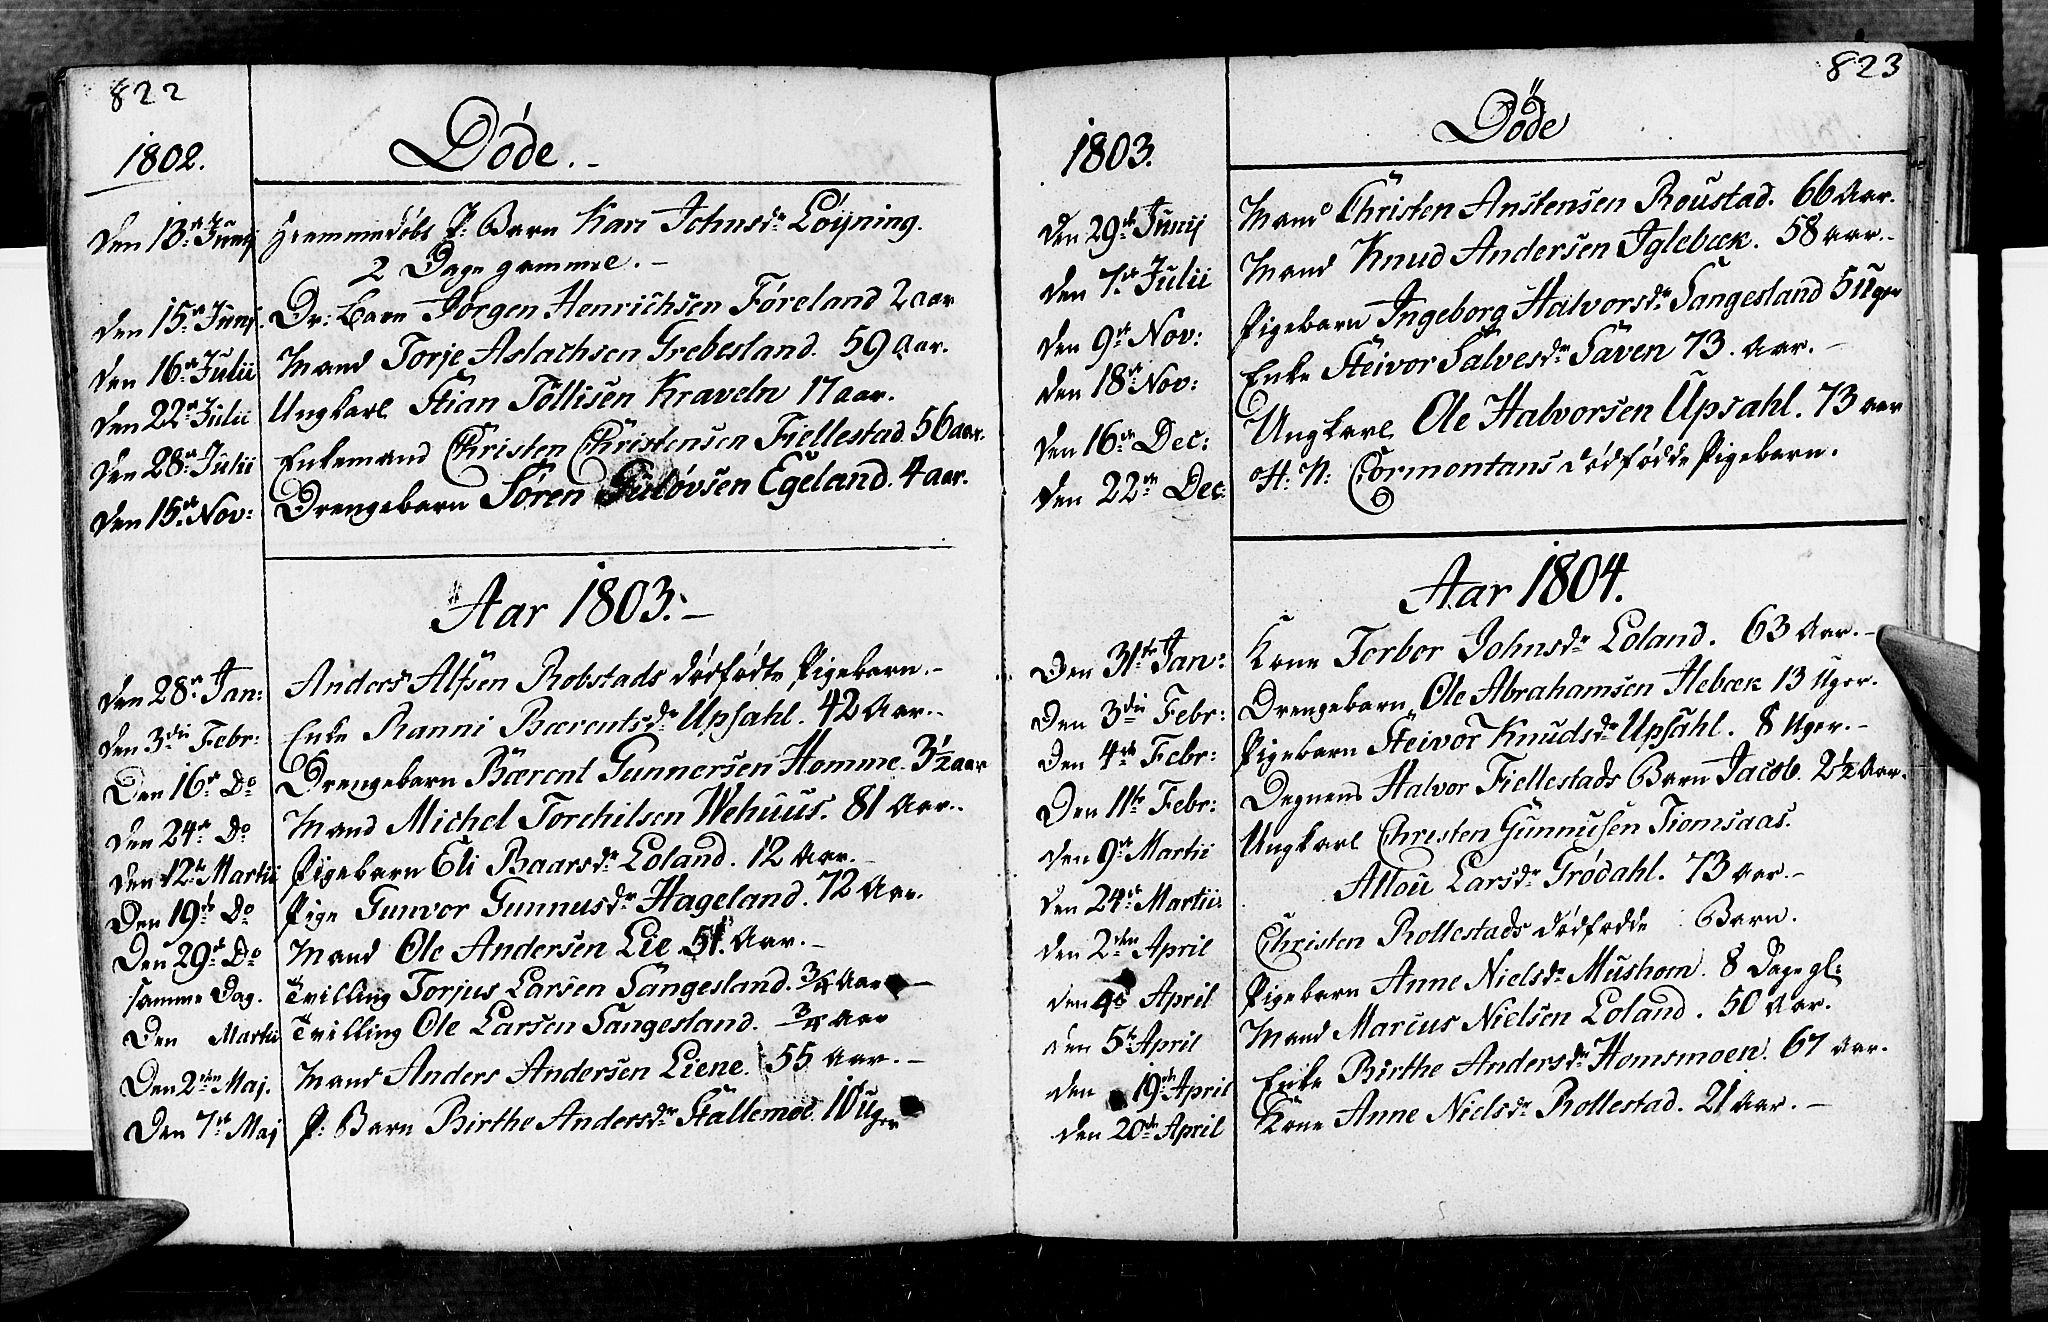 822
1802.
Døde.
Den 13de Junij Hiemmedøbt P. Barn Kari Johnsdr Løyning.
2 Dage gammel.
Den 15de Junij Dr: Barn Jørgen Henrichsen Føreland 2 aar
Den 16de Julii Mand Torje Aslachsen Grebesland. 59 Aar.
Den 22de Julii Ungkarl Stian Tøllisen Kraveln 17 aar.
Den 28de Julii Enkemand Christen Christensen Fiellestad. 56 aar.
Den 15de Nov: Drengebarn Søren Guløvsen Egeland. 4 aar.
Aar 1803.
Den 28de Jan: Anders Alfsen Robstads dødfødte Pigebarn.
Den 3die Febr: Enke Ranni Bærentsdr Upsahl. 42 Aar.
Den 16de Do Drengebarn Bærent Gunnersen Homme. 3½ aar
Den 24de Do Mand Michel Torchilsen Wehuus. 81 Aar.
Den 12te Martii Pigebarn Eli Baarsdr Loland. 12 Aar.
Den 19de Do Pige Gunvor Gunnusdr Hageland. 72 Aar.
Den 29de Do Mand Ole Andersen Lie 51. Aar.
samme Dag. Tvilling Torjus Larsen Sangesland. ¾ Aar
Den Martii Tvilling Ole Larsen Sangesland. ¾ Aar
Den 2den Maj. Mand Anders Andersen Liene. 55 Aar.
Den 7de Maj P: Barn Birthe Andersdr Stallemoe. 10 Uger
823
1803.
Døde
Den 29de Junij Mand Christen Anstensen Roustad. 66 Aar.
Den 7de Julii Mand Knud Andersen Iglebæk. 58 aar.
Den 9de Nov: Pigebarn Ingeborg Halvorsdr Sangesland 5 Uger
Den 18de Nov: Enke Steivor Salvesdr Saven 73. Aar.
Den 16de Dec: Ungkarl Ole Halvorsen Upsahl. 73 aar
Den 22de Dec: H: N: Cormontans dødfødde Pigebarn.
Aar 1804.
Den 31te Jan: Kone Torbor Johnsdr Loland. 63 Aar.
Den 3die Febr: Drengebarn Ole Abrahamsen Hebæk 13 Uger.
Den 4de Febr: Pigebarn Steivor Knudsdr Upsahl. 8 Uger.
Den 11te Febr: Degnens Halvor Fiellestads Barn Jacob. 2½ Aar.
Den 9de Martii Ungkarl Christen Gunnusen Tiomsaas.
Den 24de Martii Allou Larsdr Grødahl. 73 Aar.
Den 2den April Christen Rollestads dødfødde Barn.
Den 4de April Pigebarn Anne Nielsdr Mushom. 8 Dage gl:
Den 5te April Mand Marcus Nielsen Loland. 50 Aar.
Den 19de April Enke Birthe Andersdr Homsmoen. 67 Aar.
Den 20de April Kone Anne Nielsdr Rollestad. 21 Aar.